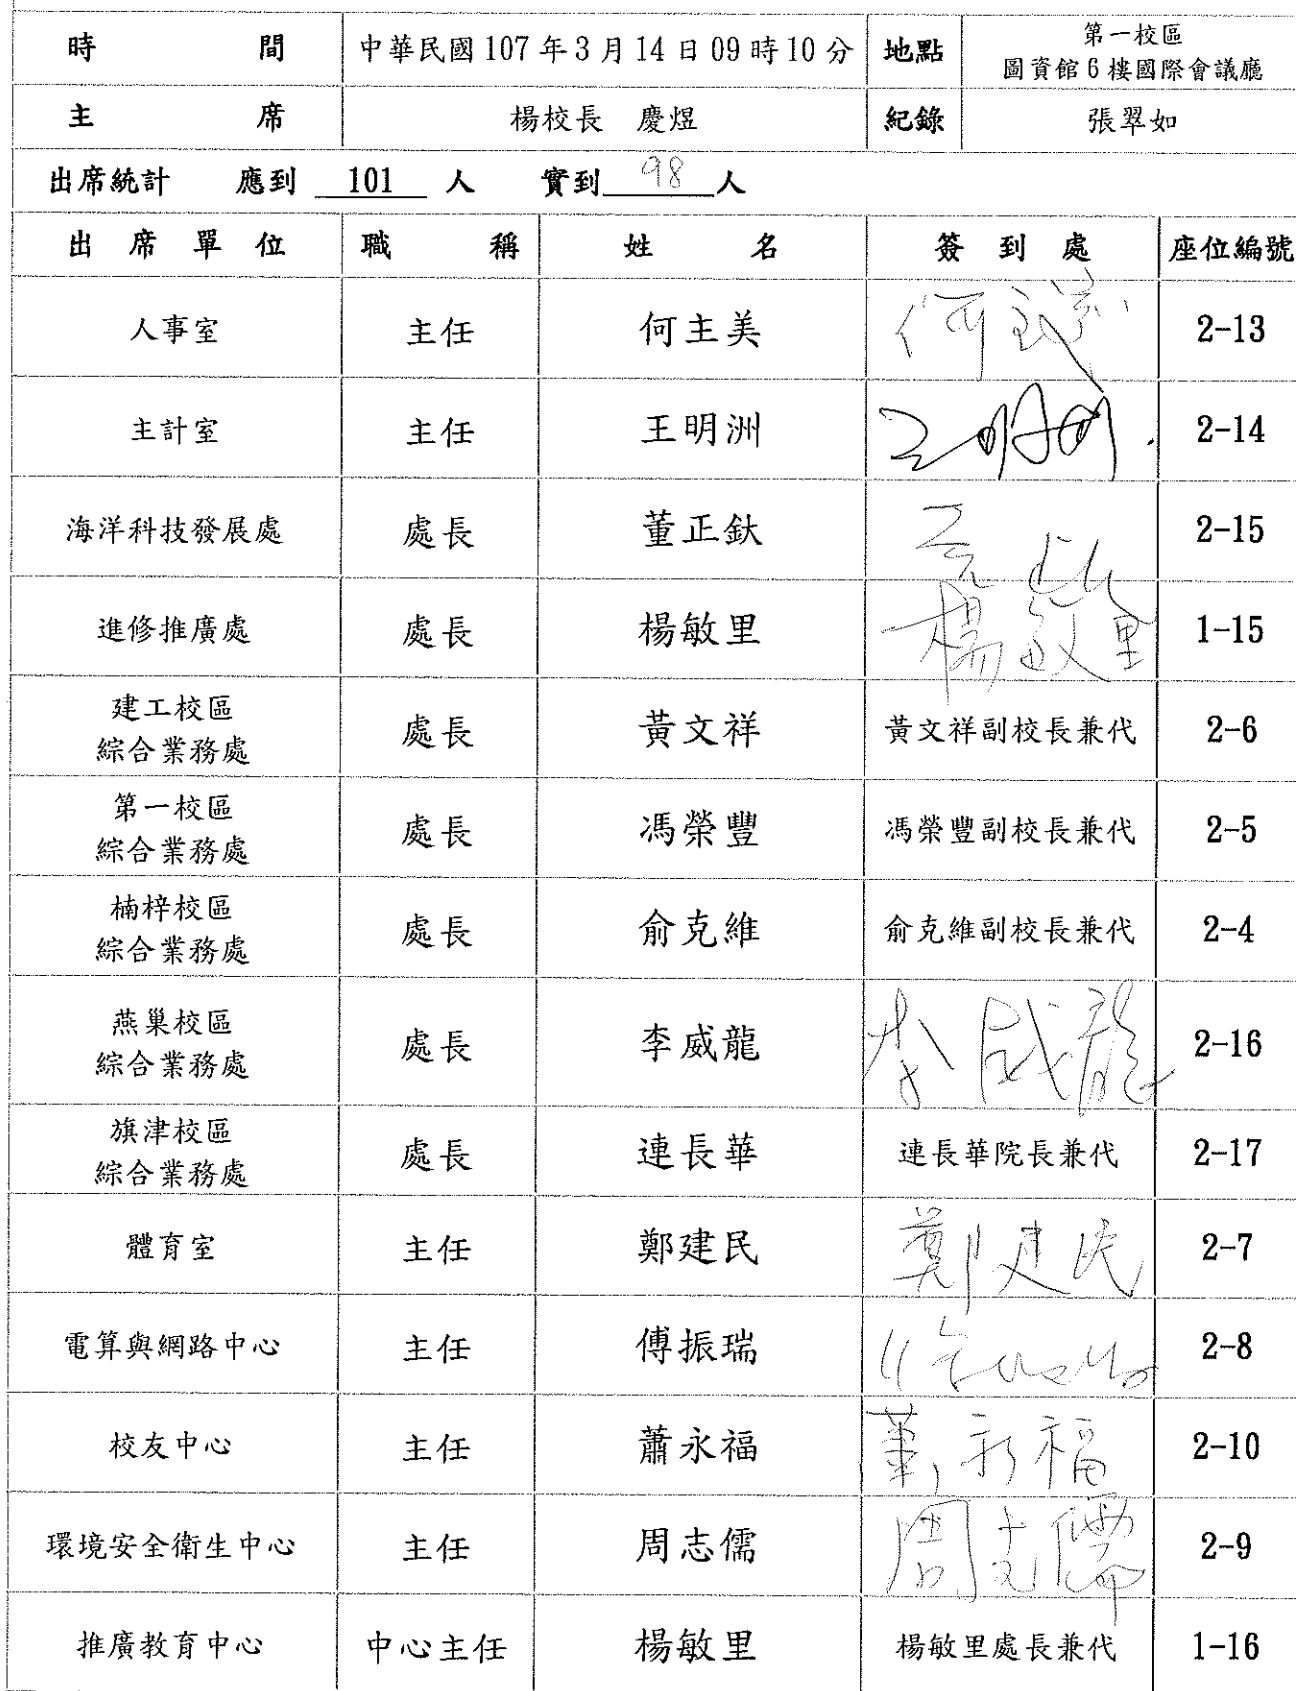 時 間 中華民國 107 年 3 月 14 日 09 時 10 分 地點 第一校區
圖資館 6 樓國際會議廳
主 席 楊校長 慶煜 紀錄 張翠如
出席統計 應到 101 人 實到 98 人
出 席 單 位 職 稱 姓 名 簽 到 處 座位編號
人事室 主任 何主美 2-13
主計室 主任 王明洲 王明洲 2-14
海洋科技發展處 處長 董正釱 2-15
進修推廣處 處長 楊敏里 楊敏里 1-15
建工校區
綜合業務處 處長 黃文祥 黃文祥副校長兼代 2-6
第一校區
綜合業務處 處長 馮榮豐 馮榮豐副校長兼代 2-5
楠梓校區
綜合業務處 處長 俞克維 俞克維副校長兼代 2-4
燕巢校區
綜合業務處 處長 李威龍 李威龍 2-16
旗津校區
綜合業務處 處長 連長華 連長華院長兼代 2-17
體育室 主任 鄭建民 鄭建民 2-7
電算與網路中心 主任 傅振瑞 2-8
校友中心 主任 蕭永福 2-10
環境安全衛生中心 主任 周志儒 周志儒 2-9
推廣教育中心 中心主任 楊敏里 楊敏里處長兼代 1-16